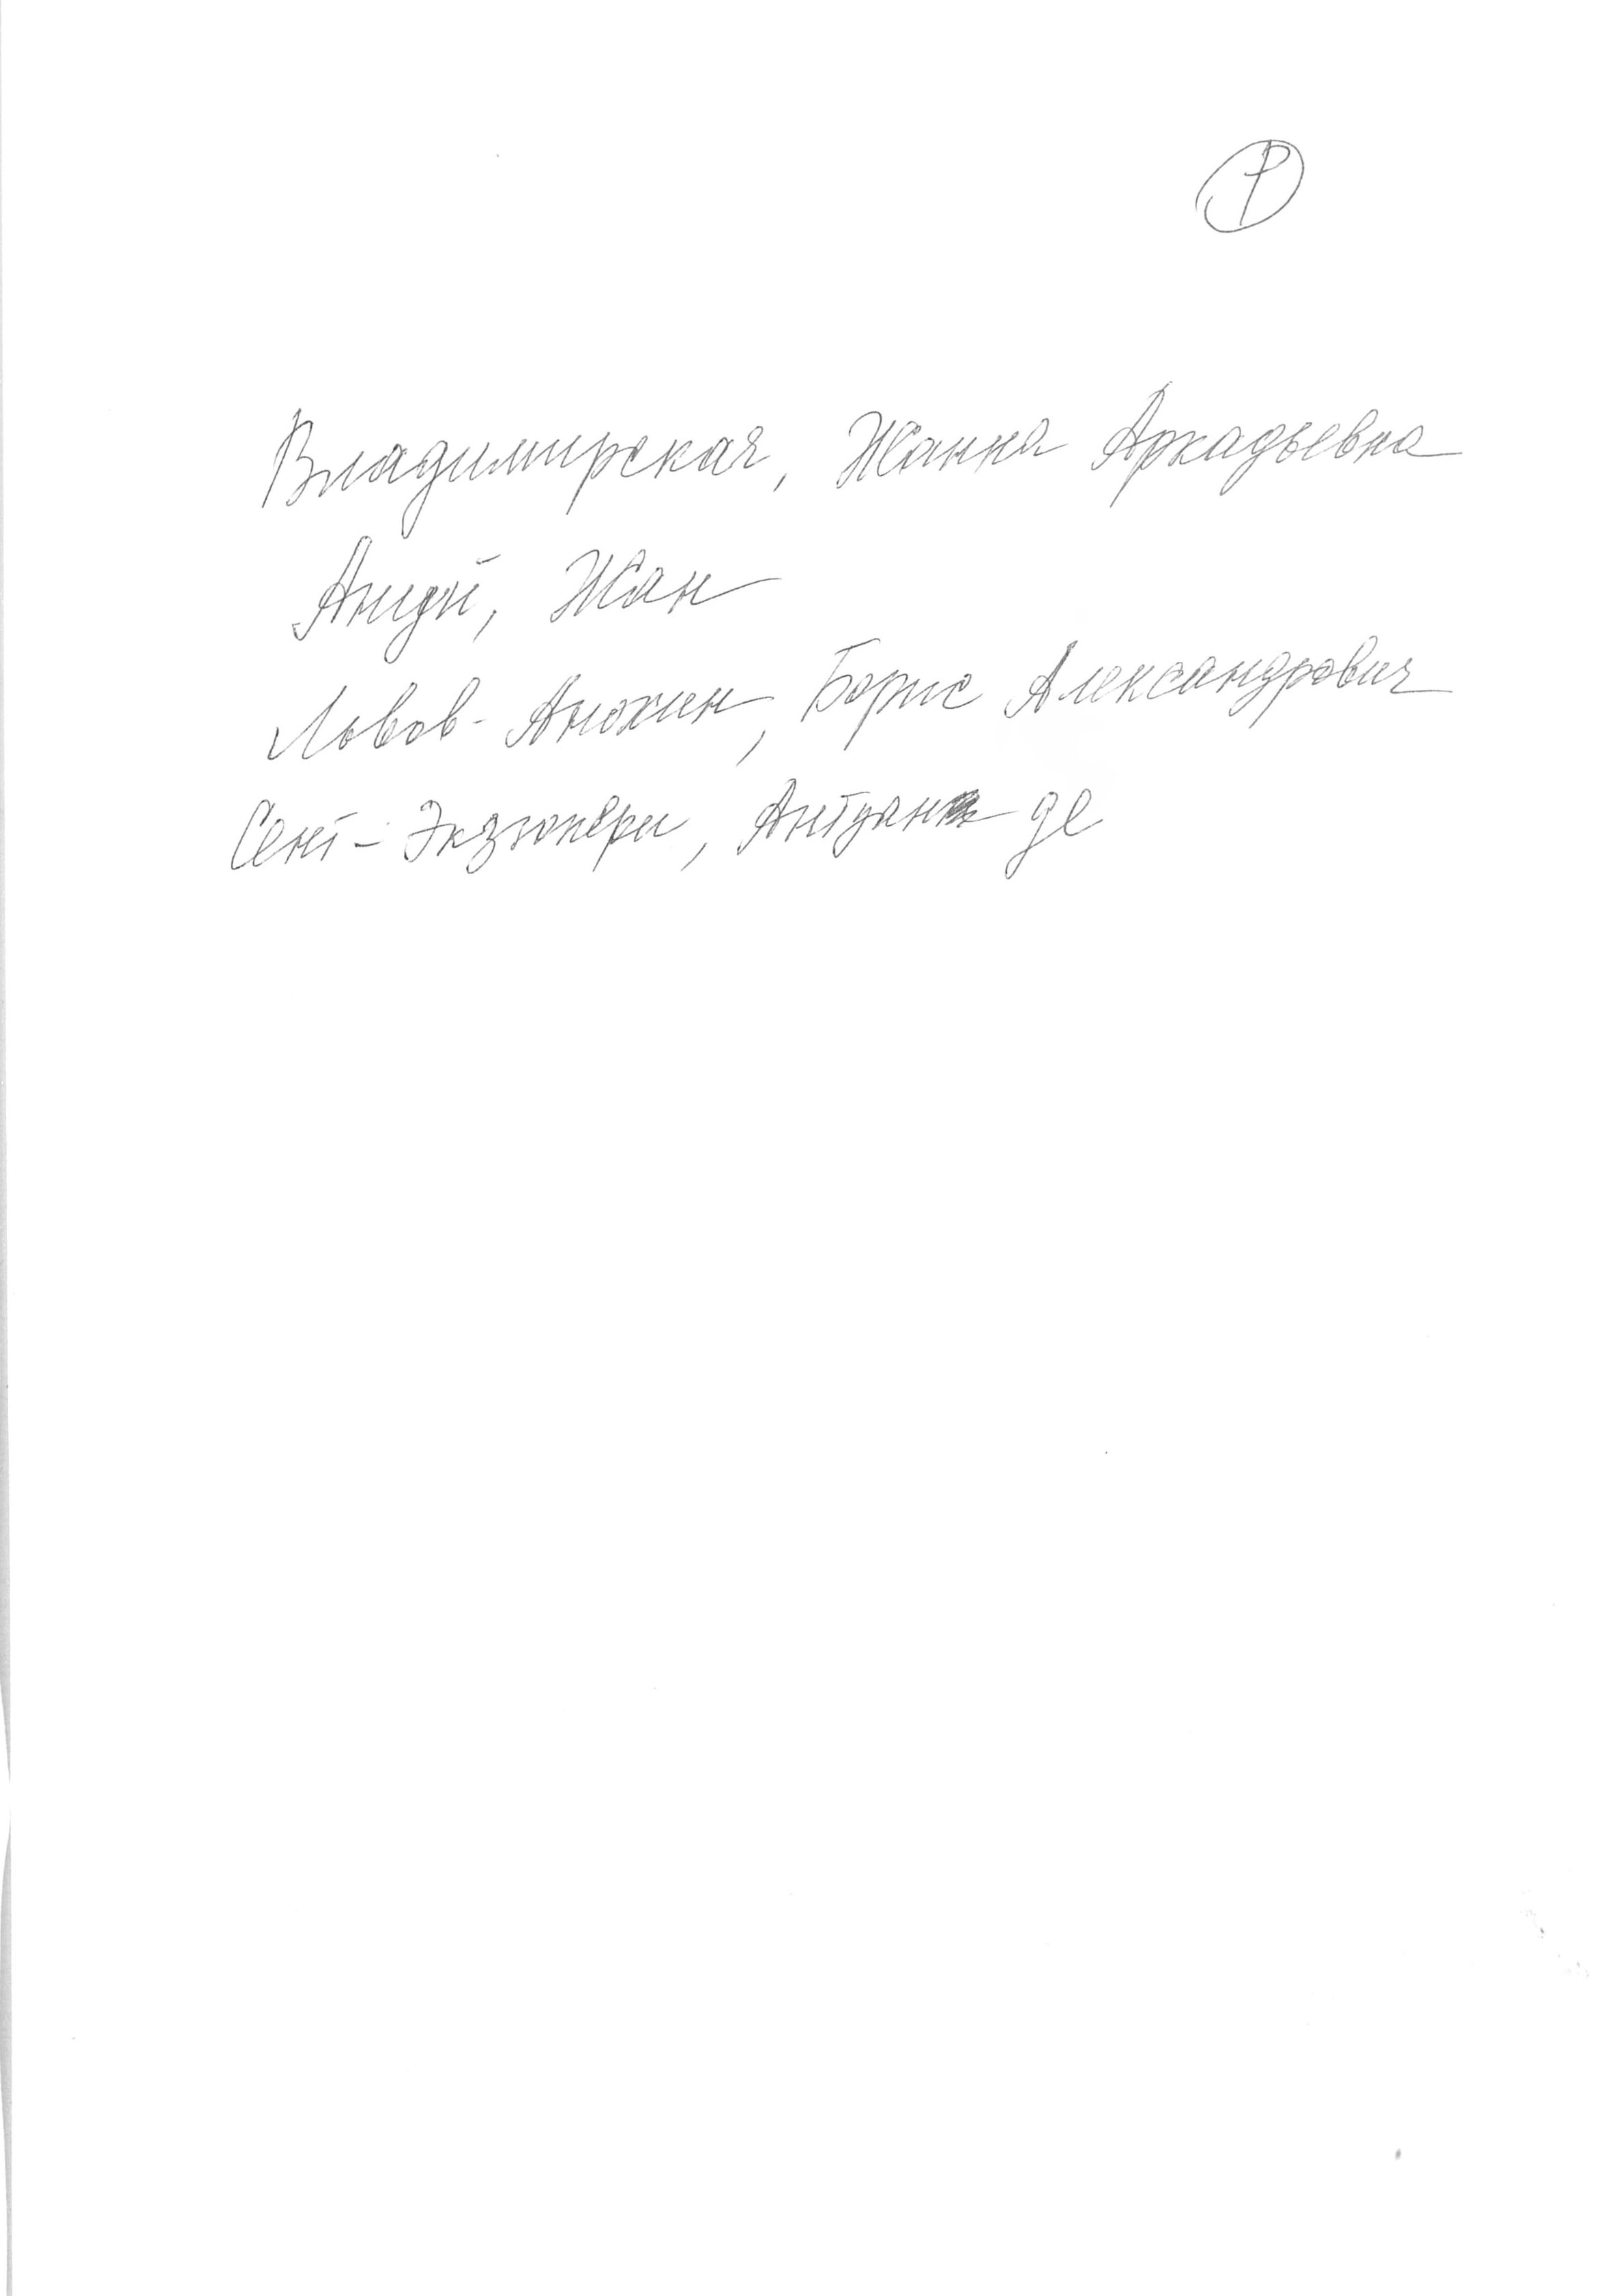 Р
Владимирская, Жанна Аркадьевна
Ануй, Жан
Львов-Анохин, Борис Александрович
Сент-Экзюпери, Антуан де